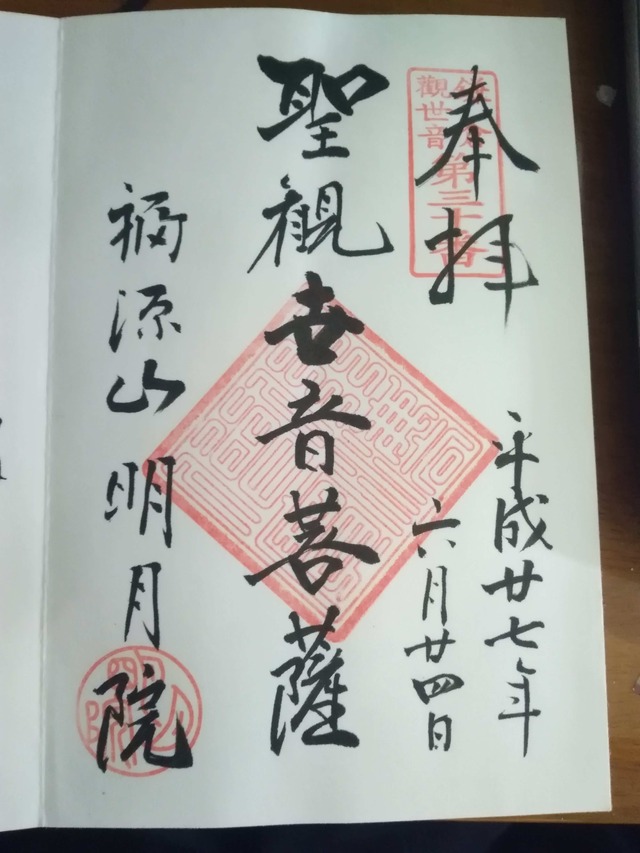 奉拝
觀世音第三十番
平成廿七年
六月廿四日
聖観世音菩薩
福源山明月院